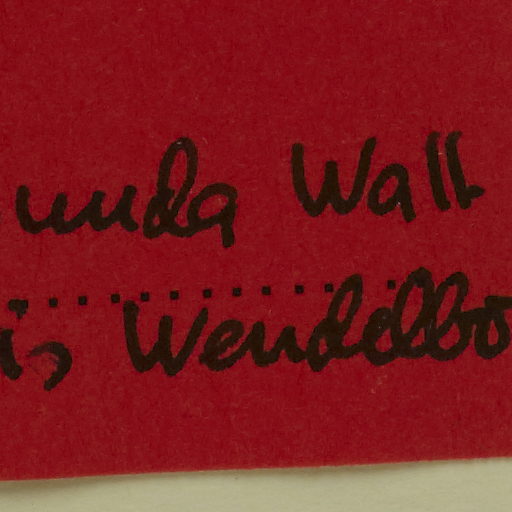 unda Wall
is Wendelbo